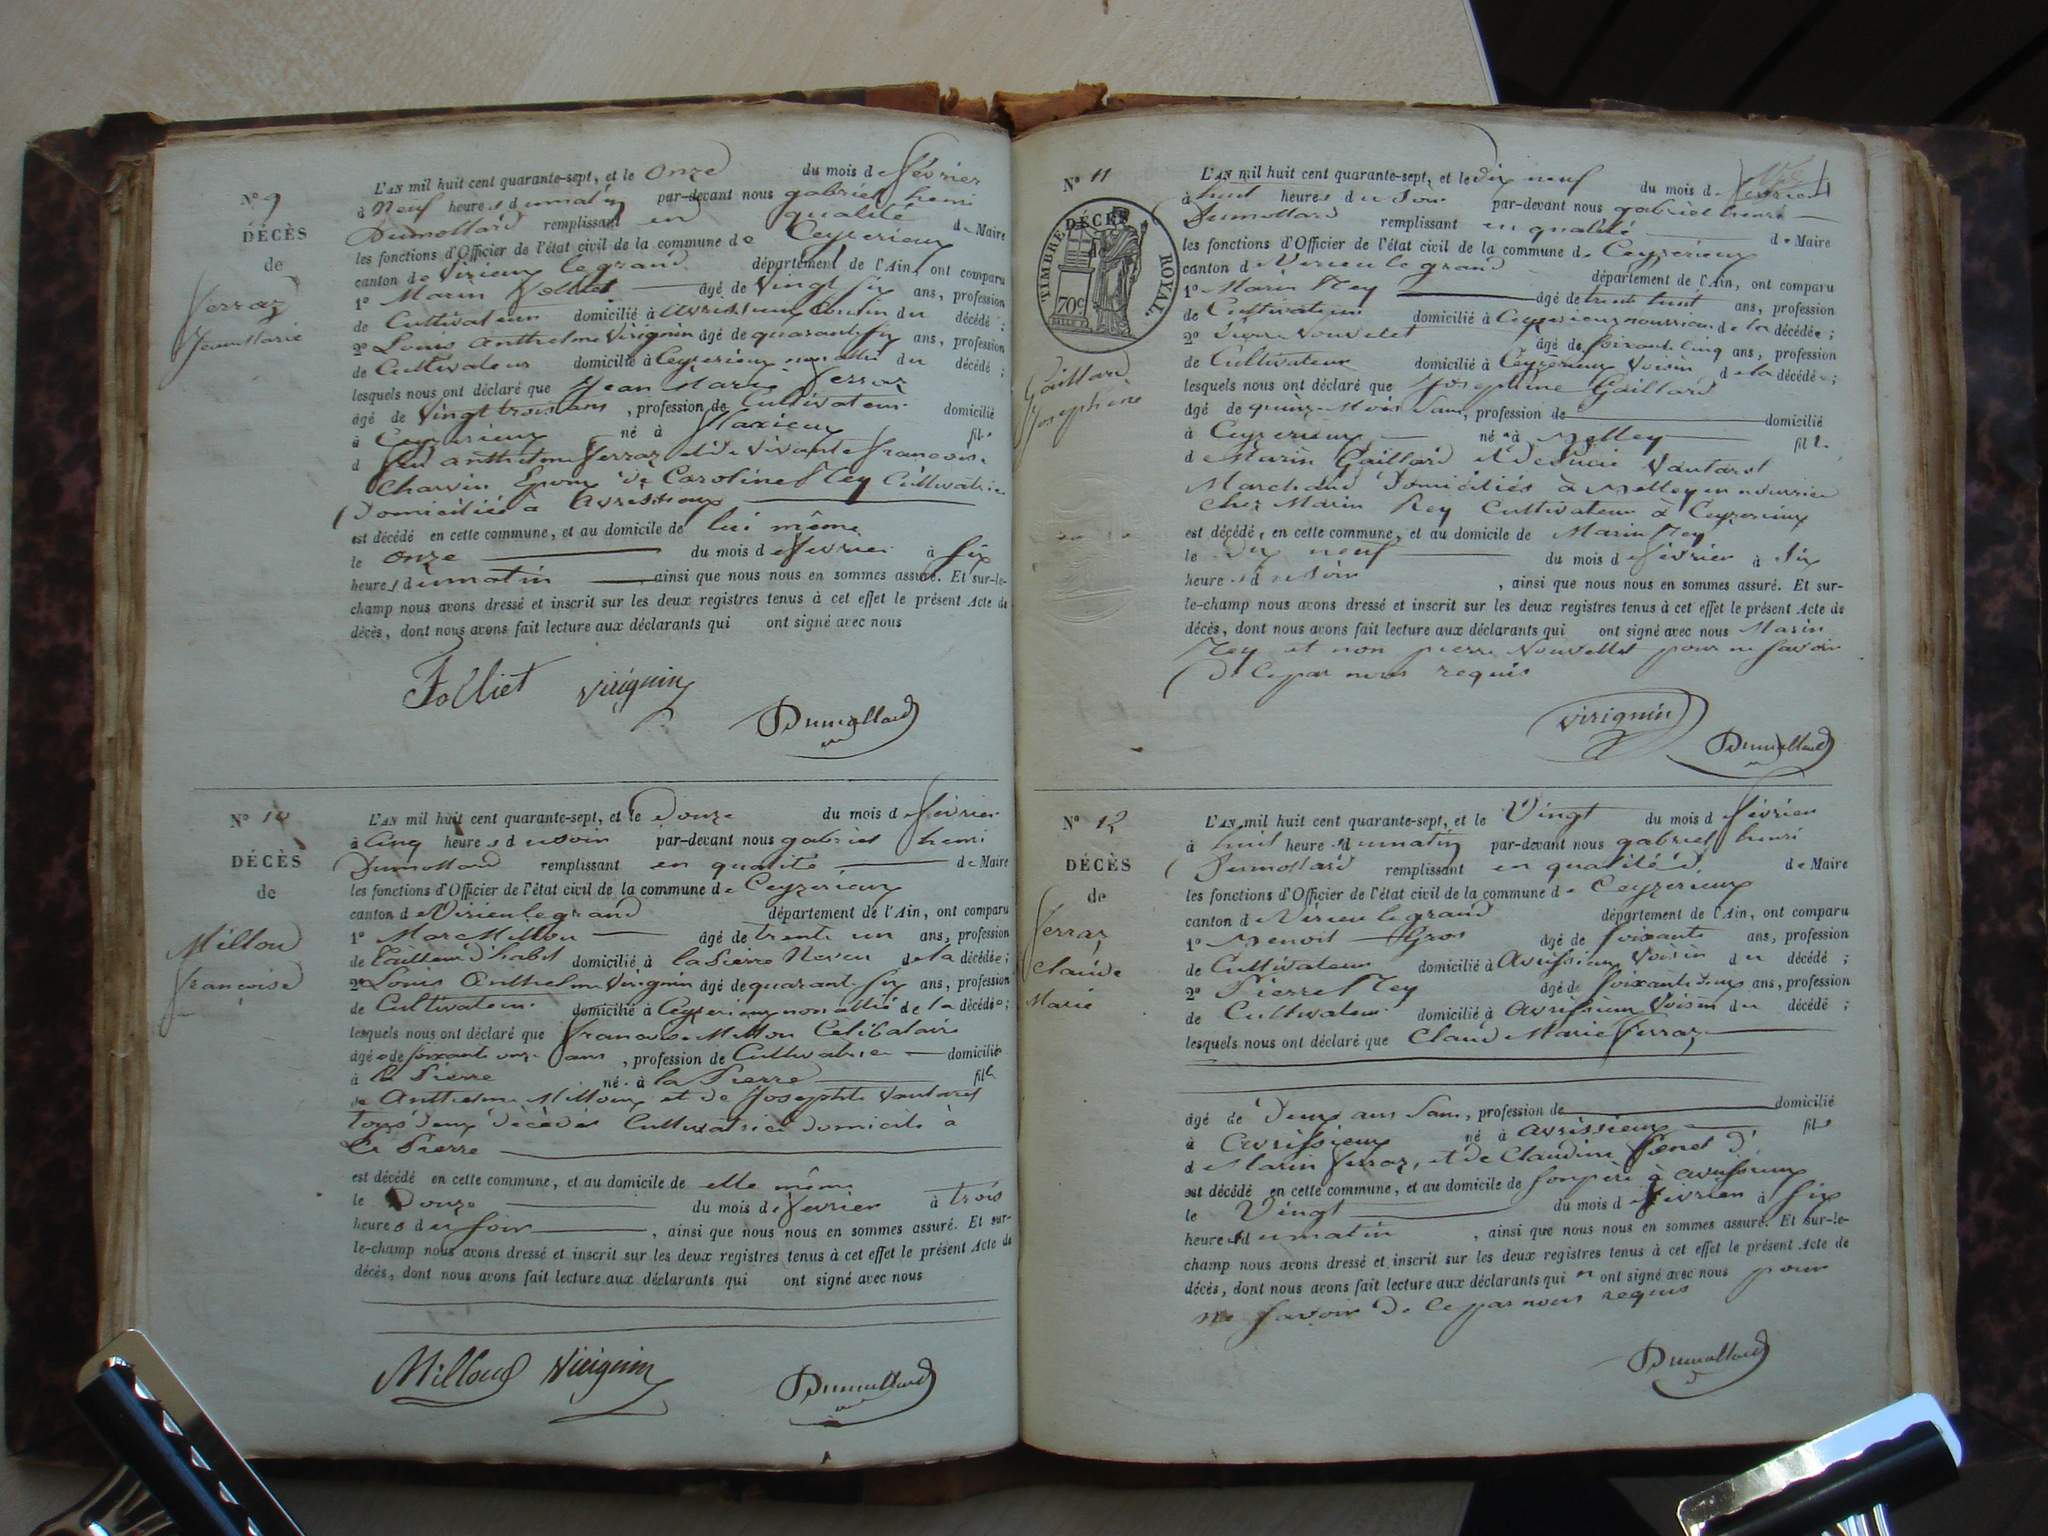 N° 9
DÉCÈS
de
Ferraz
Jean Marie
L'AN mil huit cent quarante-sept, et le onze du mois de février
à Neuf heures du matin par-devant nous gabriel henri
Dumollard remplissant en qualité de Maire
les fonctions d'Officier de l'état civil de la commune de Ceyzerieux
canton de Virieux le grand département de l'Ain, ont comparu
1° Marin Folliet âgé de Vingt six ans, profession
de Cultivateur domicilié à avrissieux Cousin du décédé ;
2° Louis anthelme Virignin âgé de quarante six ans, profession
de Cultivateur domicilié à Ceyzerieux non allié du décédé ;
lesquels nous ont déclaré que Jean Marie Ferraz
âgé de Vingt trois ans, profession de Cultivateur domicilié
à Ceyzerieux né à Marieux fils
d feu anthelme Ferraz et de vivante françoise
Charvin Epoux de Caroline Rey Cultivatrice
Domiciliée à avrissieux
est décédé en cette commune, et au domicile de lui même
le onze du mois de février à six
heures du matin, ainsi que nous nous en sommes assuré. Et sur-le-
champ nous avons dressé et inscrit sur les deux registres tenus à cet effet le présent Acte de
décès, dont nous avons fait lecture aux déclarants qui ont signé avec nous
Folliet Virignin
Dumollard
N° 10
DÉCÈS
de
Milloud
françoise
L'AN mil huit cent quarante-sept, et le Douze du mois de février
à Cinq heures du soir par-devant nous gabriel henri
Dumollard remplissant en qualité de Maire
les fonctions d'Officier de l'état civil de la commune de Ceyzerieux
canton de Virieu le grand département de l'Ain, ont comparu
1° Marc Millou âgé de trente un ans, profession
de tailleur d'habit domicilié à la Pierre Neveu de la décédée ;
2° Louis Anthelme Virignin âgé de quarante six ans, profession
de Cultivateur domicilié à Ceyzerieux non allié de la décédée ;
lesquels nous ont déclaré que françoise Millou Célibataire
âgée de soixante onze ans, profession de Cultivatrice domiciliée
à la Pierre née à la Pierre fille
de Anthelme Milloux et de Josephte Vautaret
tous deux décédés Cultivatrice domicilié à
la Pierre
est décédé en cette commune, et au domicile de elle même
le Douze du mois de février à trois
heures du soir, ainsi que nous nous en sommes assuré. Et sur-
le-champ nous avons dressé et inscrit sur les deux registres tenus à cet effet le présent Acte de
décès, dont nous avons fait lecture aux déclarants qui ont signé avec nous
Milloud Virignin
Dumollard
N° 11
TIMBRE ROYAL
70c
DÉCÈS
Gaillard
Josephine
L'AN mil huit cent quarante-sept, et le dix neuf du mois de février
à huit heures du soir par-devant nous gabriel henri
Dumollard remplissant en qualité de Maire
les fonctions d'Officier de l'état civil de la commune de Ceyzerieux
canton de Virieu le grand département de l'Ain, ont comparu
1° Marin Rey âgé de trente huit ans, profession
de Cultivateur domicilié à Ceyzerieux nourricier de la décédée ;
2° Pierre Nouvelet âgé de soixante cinq ans, profession
de Cultivateur domicilié à Ceyzerieux Voisin de la décédée ;
lesquels nous ont déclaré que Josephine Gaillard
âgé de quinze Mois Sans, profession de domicilié
à Ceyzerieux née à Belley fille
de Marin Gaillard et de Lucie Vautaret
Marchand Domiciliés à Belley en nourrice
chez Marin Rey Cultivateur à Ceyzerieux
est décédé, en cette commune, et au domicile de Marin Rey
le Dix neuf du mois de février à Six
heures du Soir, ainsi que nous nous en sommes assuré. Et sur-
le-champ nous avons dressé et inscrit sur les deux registres tenus à cet effet le présent Acte de
décès, dont nous avons fait lecture aux déclarants qui ont signé avec nous Marin
Rey et non pierre Nouvellet pour ne savoir
De Ce par nous requis
Virignin
Dumollard
N° 12
DÉCÈS
de
Ferraz
Claude
Marie
L'AN mil huit cent quarante-sept, et le Vingt du mois de février
à huit heures du matin par-devant nous gabriel henri
Dumollard remplissant en qualité d de Maire
les fonctions d'Officier de l'état civil de la commune de Ceyzerieux
canton de Virieu le grand département de l'Ain, ont comparu
1° Benoit Gros âgé de soixante ans, profession
de Cultivateur domicilié à Avrissieux Voisin du décédé ;
2° Pierre Rey âgé de soixante deux ans, profession
de Cultivateur domicilié à Avrissieux Voisin du décédé ;
lesquels nous ont déclaré que Claude Marie Ferraz
âgé de Deux ans Sans, profession de domicilié
à Avrissieux né à Avrissieux fils
de Marin Ferraz, et de Claudine
est décédé en cette commune, et au domicile de son père à avrissieux
le Vingt du mois de février à six
heures du matin, ainsi que nous nous en sommes assuré. Et sur-le-
champ nous avons dressé et inscrit sur les deux registres tenus à cet effet le présent Acte de
décès, dont nous avons fait lecture aux déclarants qui n'ont signé avec nous pour
ne savoir De Ce par nous requis
Dumollard